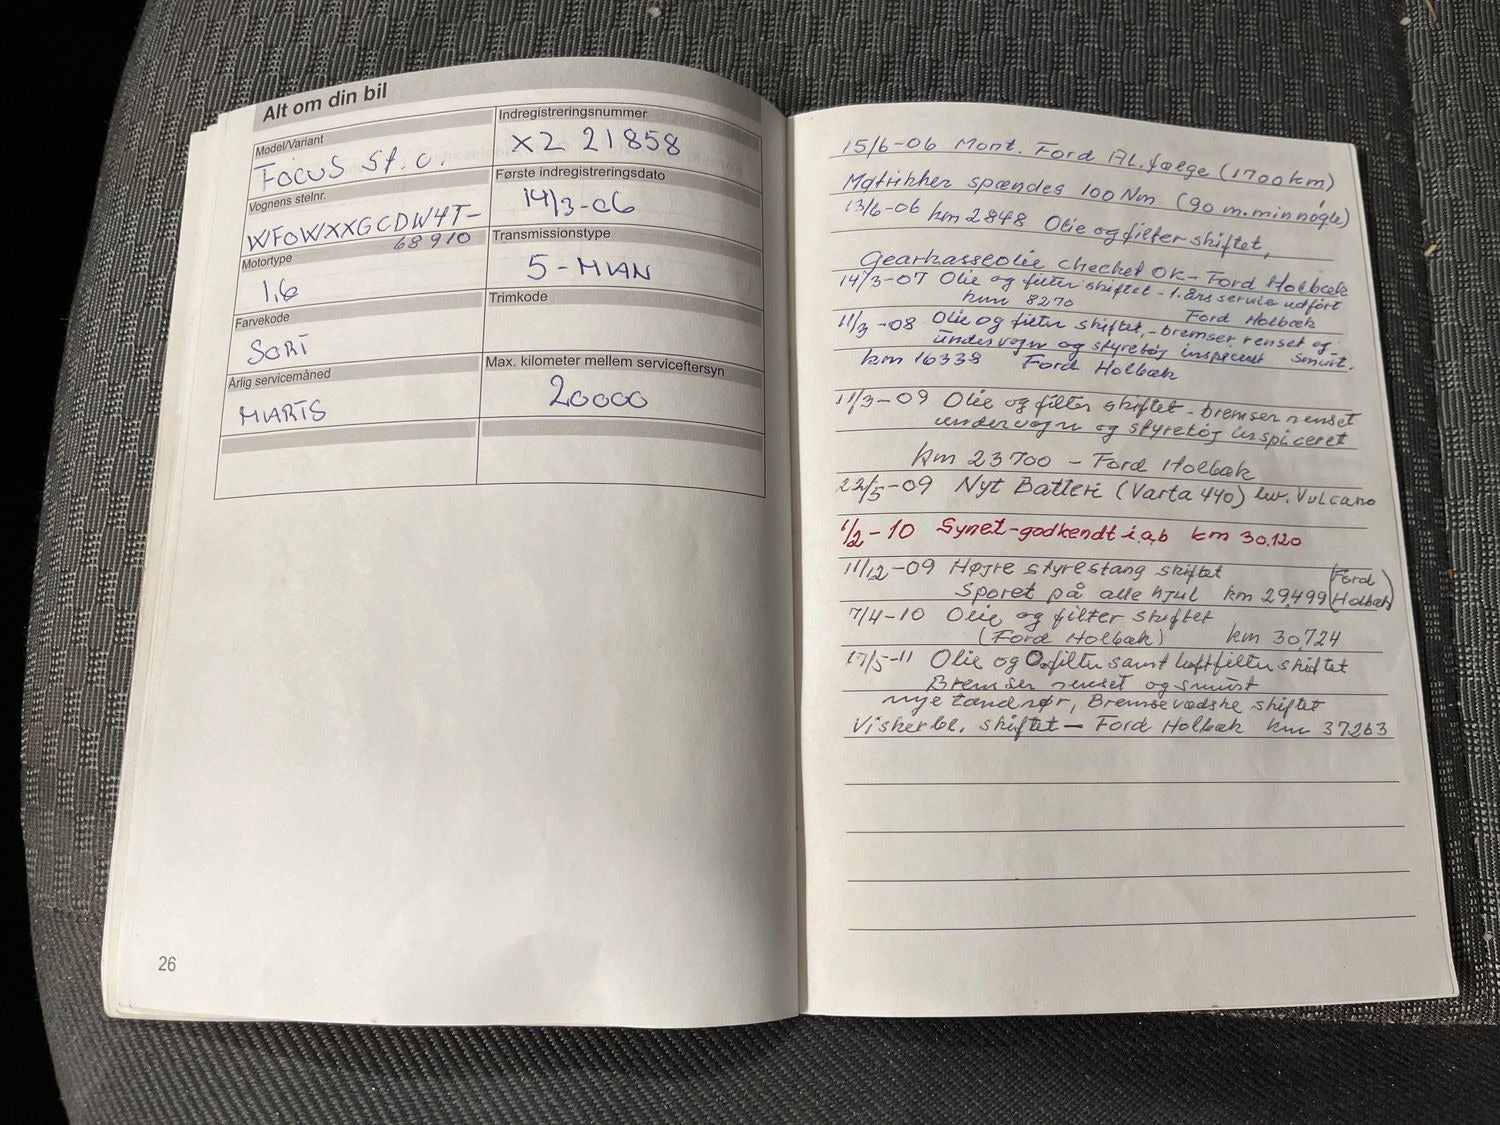 Alt om din bil
Model/Variant
Focus St. c.
Indregistreringsnummer
XZ 21858
Vognens stelnr.
WF0WXXGCDW4T-
68910
Første indregistreringsdato
14/3-06
Motortype
1,6
Transmissionstype
5-MAN
Farvekode
SORT
Trimkode
Årlig servicemåned
MARTS
Max. kilometer mellem serviceeftersyn
20000
26
15/6-06 Mont. Ford AL.fælge (1700 km)
Møtrikker spændes 100 Nm (90 m. min nøgle)
13/6-06 km 2848 Olie og filter skiftet,
Gearkasseolie checket OK- Ford Holbæk
14/3-07 Olie og filter skiftet - 1. års servie udført
km 8270 Ford Holbæk
11/3-08 Olie og filter skiftet, - bremser renset og
undervogn og styretøj inspiceret smurt.
km 16338 Ford Holbæk
11/3-09 Olie og filter skiftet - bremser renset
undervogn og styretøj inspiceret
km 23700 - Ford Holbæk
22/5-09 Nyt Batteri (Varta 440) lev. Vulcano
1/2-10 Synet-godkendt i.a.b km 30.120
11/12-09 Højre styrestang skiftet (Ford
Sporet på alle hjul km 29,499 Holbæk)
7/4-10 Olie og filter skiftet
(Ford Holbæk) km 30,724
17/5-11 Olie og O.filter samt luftfilter skiftet
Bremser renset og smurt
nye tændrør, Bremsevædske skiftet
Viskerbl. skiftet - Ford Holbæk km 37263